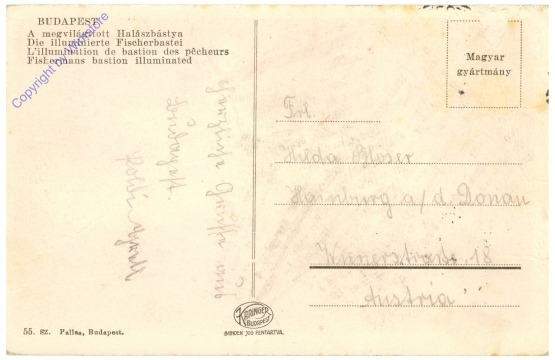 BUDAPEST
A megvilágított Halászbástya
Die illuminierte Fischerbastei
L'illumination de bastion des pêcheurs
Fishermans bastion illuminated
Copyright by Markstore
Magyar
gyártmány
Frl.
Hilda Moser
Hainburg a/d. Donau
Wienerstraße 18
Austria
Herzliche Grüsse aus
BUDAPEST
MINDEN JOG FENTARTVA.
55. sz. Pallas, Budapest.